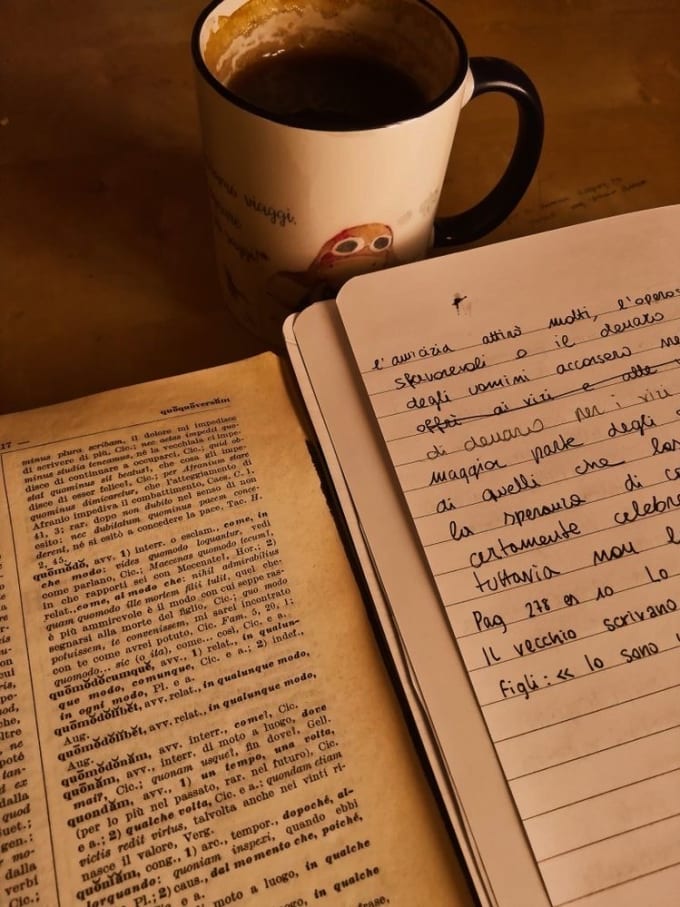 viaggi,
17 —
quōquōversŭm
minus plura scribam, il dolore mi impedisce
di scrivere di più, Cic.; nec aetas impedit quo-
minus studia teneamus, né la vecchiaia ci impe-
disce di continuare a occuparci, Cic.; quid ob-
stat quominus sit beatus?, che cosa gli impe-
disce di esser felice?, Cic.; per Afranium stare
quominus dimicaretur, che l'atteggiamento di
Afranio impediva il combattimento, Caes. C. 1,
41, 3; rar. dopo non dubito nel senso di non
esito: nec dubitatum quominus pacem conce-
derent, né si esitò a concedere la pace, Tac. H.
2, 45.
quōmŏdŏ, avv. 1) interr. o esclam., come, in
che modo: vides quomodo loquantur, vedi
come parlano, Cic.; Maecenas quomodo tecum?,
in che rapporti sei con Mecenate?, Hor.; 2)
relat., come, al modo che: nihil admirabilius
quam quomodo ille mortem filii tulit, quel che
è più ammirevole è il modo con cui seppe ras-
segnarsi alla morte del figlio, Cic.; quo modo
potuissem, te convenissem, mi sarei incontrato
con te come avrei potuto, Cic. Fam. 5, 20, 1;
quomodo... sic (o ita), come... così, Cic. e a.
quōmŏdŏcumquĕ, avv., 1) relat., in qualun-
que modo, comunque, Cic. e a.; 2) indef.,
in ogni modo, Pl. e a.
quōmŏdŏlĭbĕt, avv. relat., in qualunque modo,
Aug.
quōmŏdŏlĭbĕt, avv. relat., in qualunque modo,
Aug.
quōmŏdŏnăm, avv. interr., come?, Cic.
quōnăm, avv., interr. di moto a luogo, dove
mai?, Cic.; quonam usque?, fin dove?, Gell.
quondăm, avv., 1) un tempo, una volta,
(per lo più nel passato, rar. nel futuro), Cic.
e a.; 2) qualche volta, Cic. e a.; quondam etiam
victis redit virtus, talvolta anche nei vinti ri-
nasce il valore, Verg.
quŏnĭăm, cong., 1) arc., tempor., dopoché, al-
lorquando: quoniam inspexi, quando ebbi
Pl.; 2) caus., dal momento che, poiché,
in qualche
moto a luogo, in qualche
l'amicizia attirò molti,
sfavorevoli o il denaro
degli uomini accorsero
offrì ai vizi e alle
di denaro per i vizi
maggior parte degli
di quelli che
la speranza di
certamente
tuttavia non
Pag 278 es 10 Lo
Il vecchio scrivano
figli: << Io sono